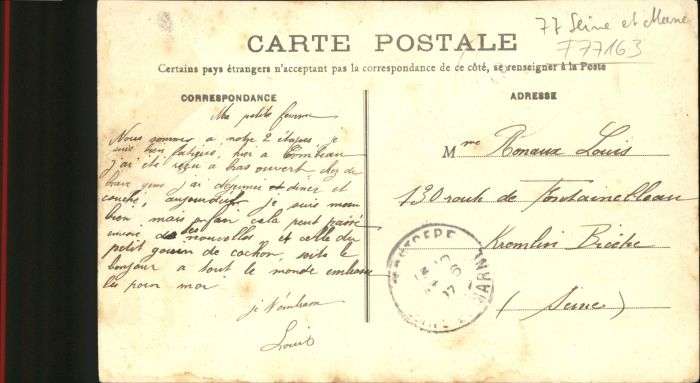 77 Seine et Marne
F77163
CARTE POSTALE
Certains pays étrangers n'acceptent pas la correspondance de ce côté, se renseigner à la Poste
CORRESPONDANCE
Ma petite femme
Nous sommes a notre 2 étapes je
suis bien fatigué, hier a Combeau
j'ai été reçu a bras ouvert chez de
brave gens j'ai déjeuner et diner et
couché, aujourdhui je suis
bien mais enfin cela peut passé
envoie des nouvelles et celle du
petit de cochon, soite le
bonjour a tout le monde embrasse
les pour moi
je t'embrasse
Louis
ADRESSE
Mme Monaux Louis
130 route de Fontainebleau
Kremlin Bicêtre
(Seine)